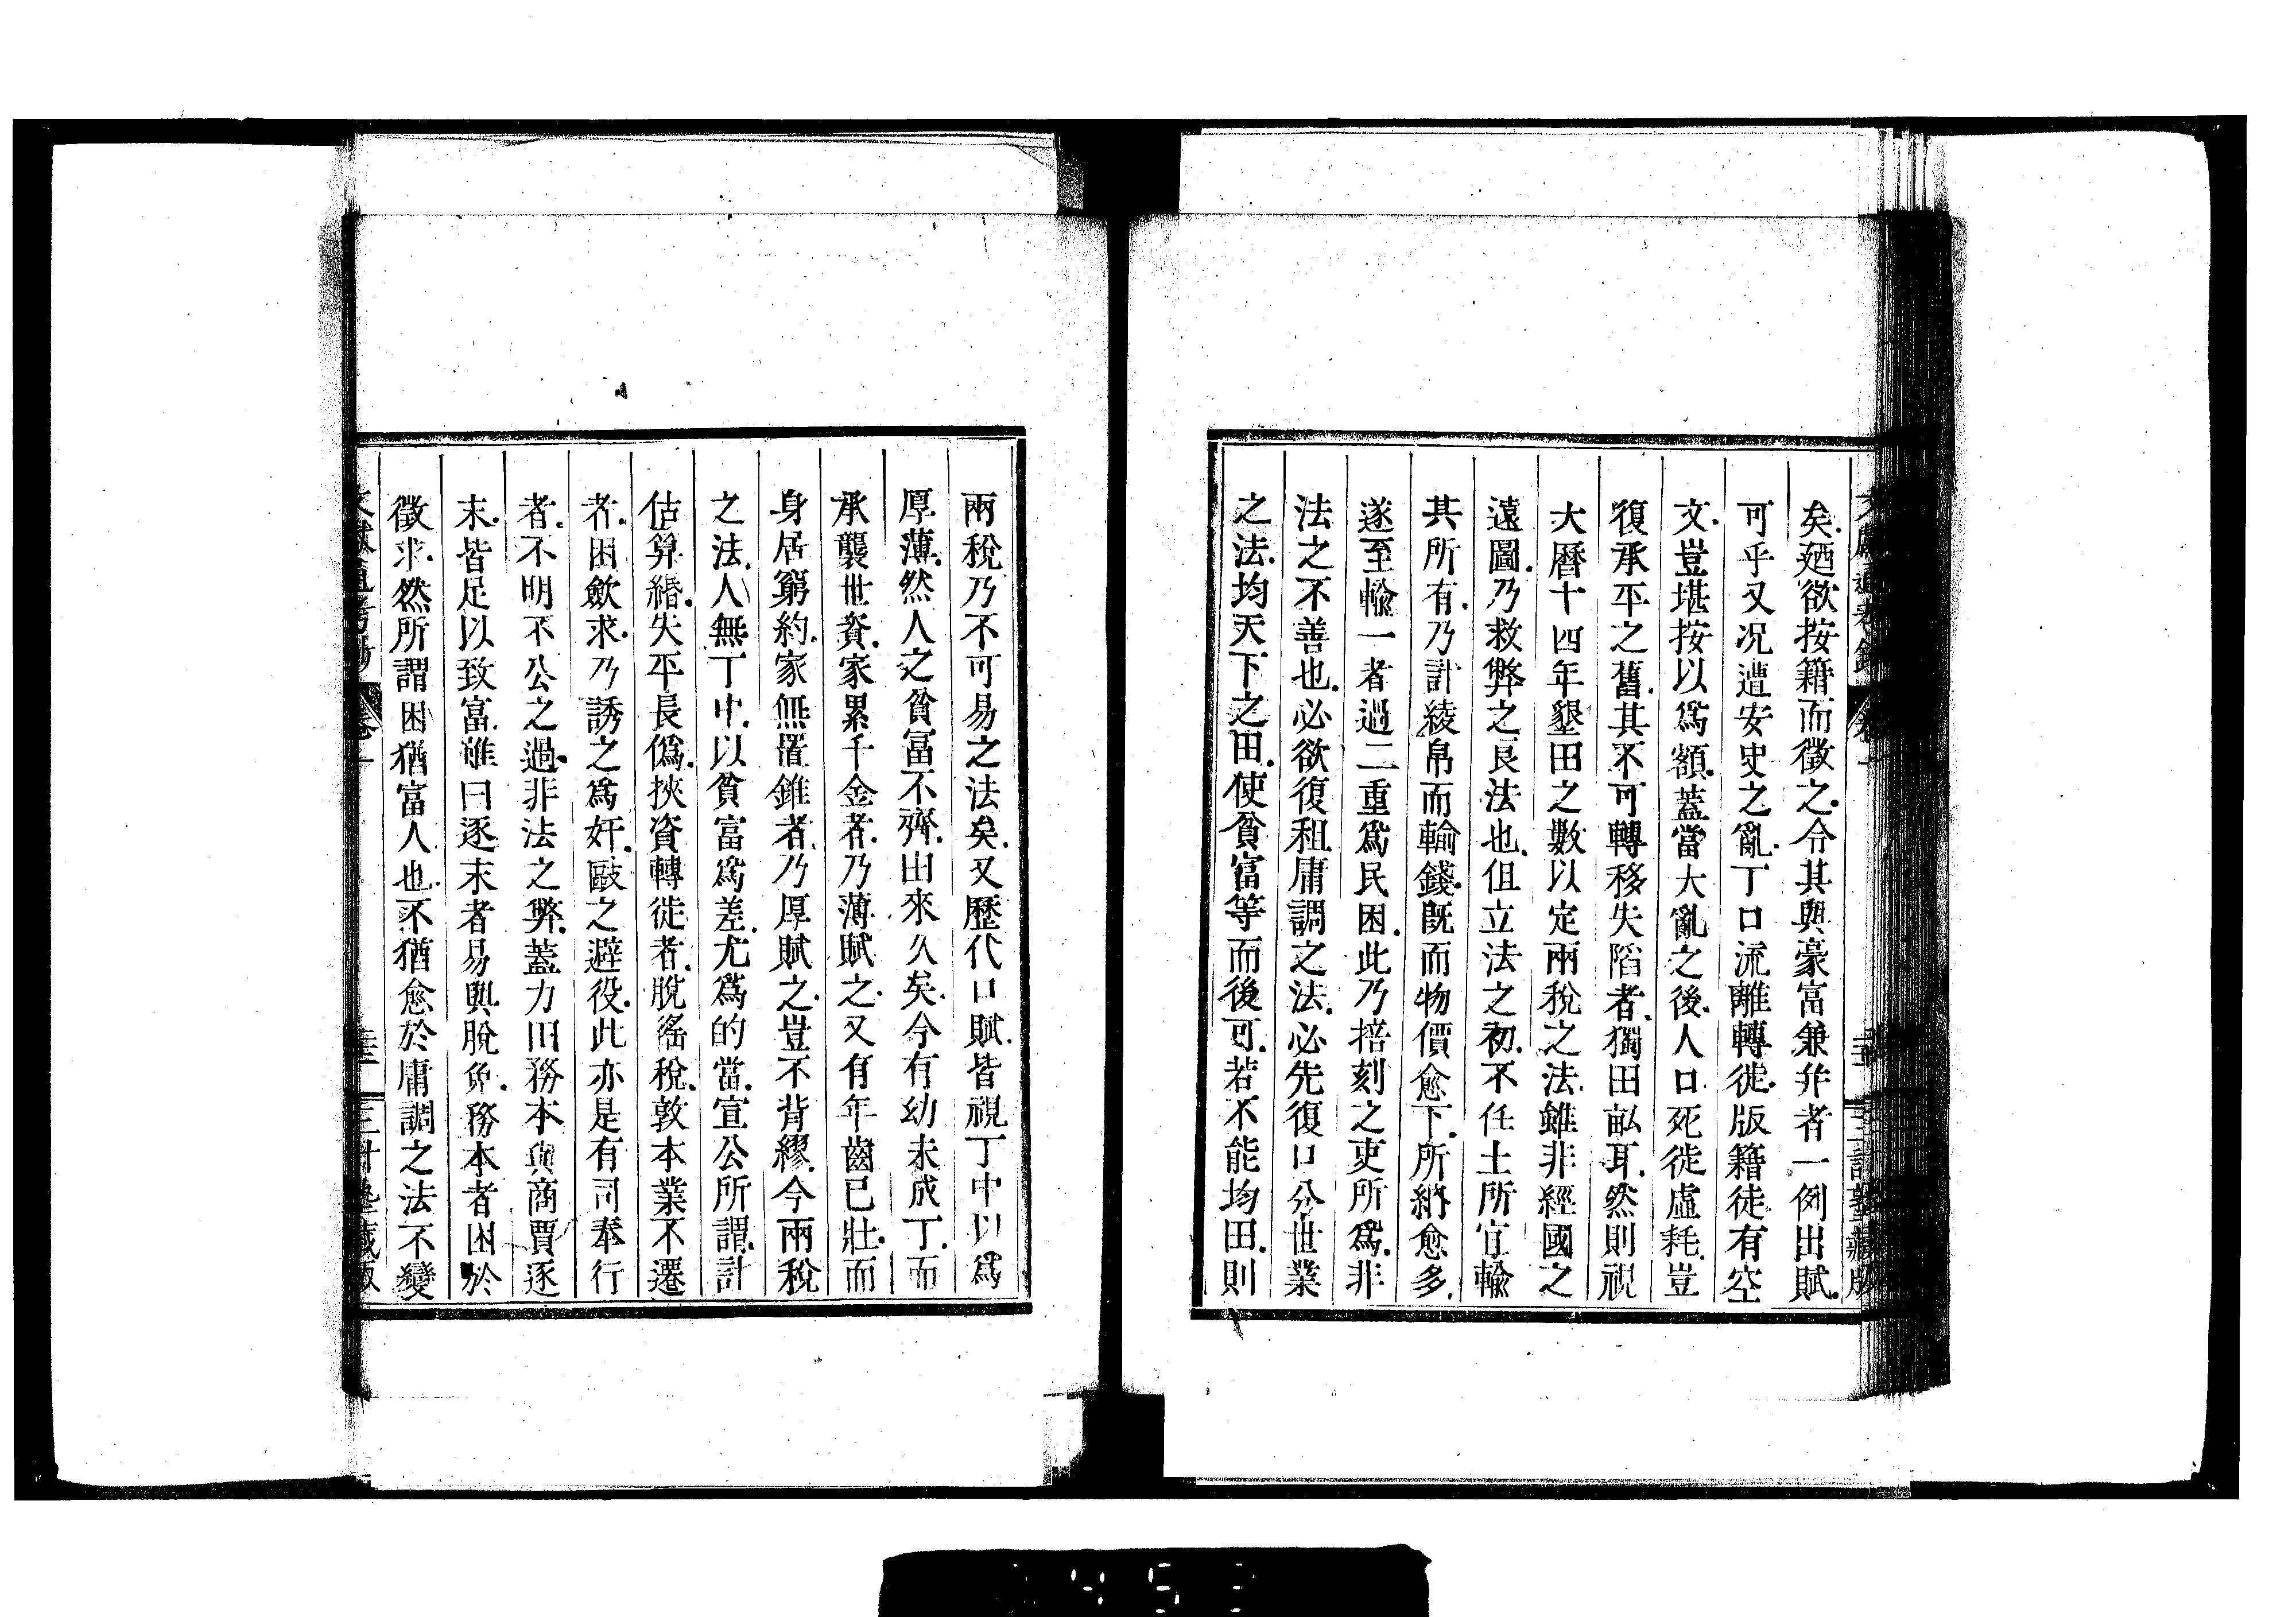 矣廼欲按籍而徵之令其與豪富兼并者一例出賦
可乎又况遭安史之亂丁口流離轉徙版籍徒有空
文豈堪按以爲額蓋當大亂之後人口死徙虛耗豈
復承平之舊其不可轉移失陷者獨田畝耳然則視
大曆十四年墾田之數以定兩稅之法雖非經國之
遠圖乃救弊之良法也但立法之初不任土所宜輸
其所有乃計綾帛而輸錢旣而物價愈下所納愈多
遂至輸一者過二重爲民困此乃掊刻之吏所爲非
法之不善也必欲復租庸調之法必先復口分世業
之法均天下之田使貧富等而後可若不能均田則
兩稅乃不可易之法矣又歷代口賦皆視丁中以爲
厚薄然人之貧富不齊由來久矣今有幼未成丁而
承襲世資家累千金者乃薄賦之又有年齒已壯而
身居窮約家無置錐者乃厚賦之豈不背繆今兩稅
之法人無丁中以貧富爲差尤爲的當宣公所謂計
估算緡失平長僞挾資轉徙者脫徭稅敦本業不遷
者困歛求乃誘之爲奸敺之避役此亦是有司奉行
者不明不公之過非法之弊蓋力田務本與商賈逐
末皆足以致富雖曰逐末者易與脫免務本者困於
徵求然所謂困猶富人也不猶愈於庸調之法不變